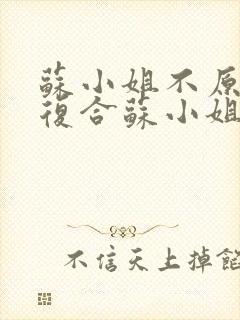 蘇小姐不原
復合蘇小姐
不信天上掉餡